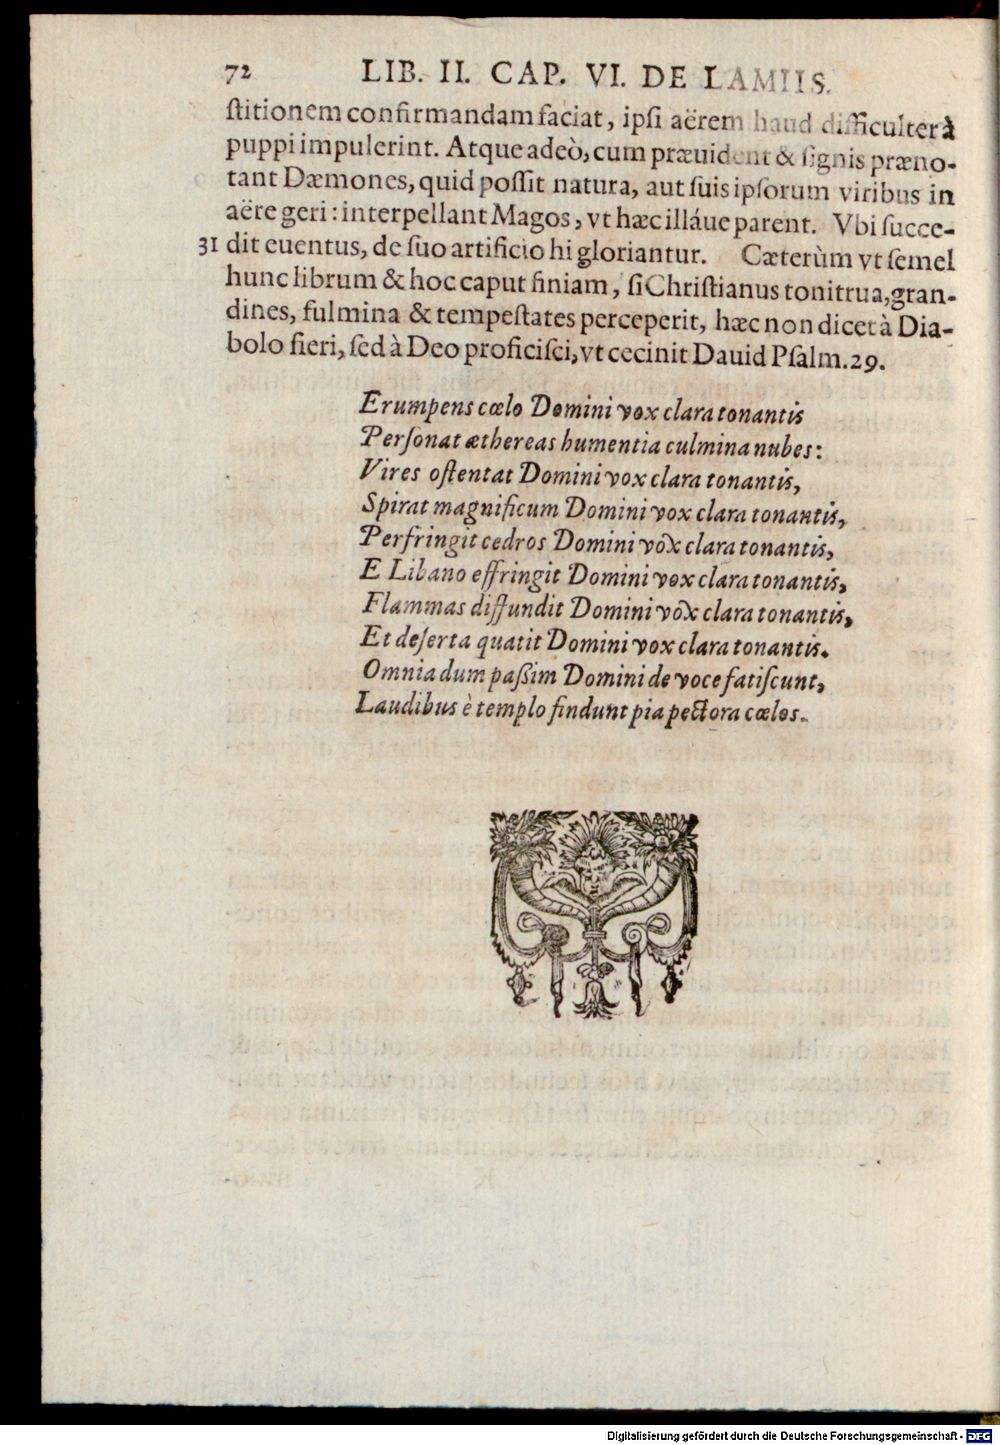 72 LIB. II. CAP. VI. DE LAMIIS.
ſtitionem confirmandam faciat, ipſi aërem haud difficulter à
puppi impulerint. Atque adeò, cum præuident & ſignis præno-
tant Dæmones, quid poſſit natura, aut ſuis ipſorum viribus in
aëre geri: interpellant Magos, vt hæc illáue parent. Vbi ſucce-
31 dit euentus, de ſuo artificio hi gloriantur. Cæterùm vt ſemel
hunc librum & hoc caput finiam, ſi Chriſtianus tonitrua, gran-
dines, fulmina & tempeſtates perceperit, hæc non dicet à Dia-
bolo fieri, ſed à Deo proficiſci, vt cecinit Dauid Pſalm. 29.
Erumpens cœlo Domini vox clara tonantis
Perſonat æthereas humentia culmina nubes:
Vires oſtentat Domini vox clara tonantis,
Spirat magnificum Domini vox clara tonantis,
Perfringit cedros Domini vox clara tonantis,
E Libano effringit Domini vox clara tonantis,
Flammas diffundit Domini vox clara tonantis,
Et deſerta quatit Domini vox clara tonantis.
Omnia dum paßim Domini de voce fatiſcunt,
Laudibus è templo findunt pia pectora cœlos.
Digitalisierung gefördert durch die Deutsche Forschungsgemeinschaft - DFG